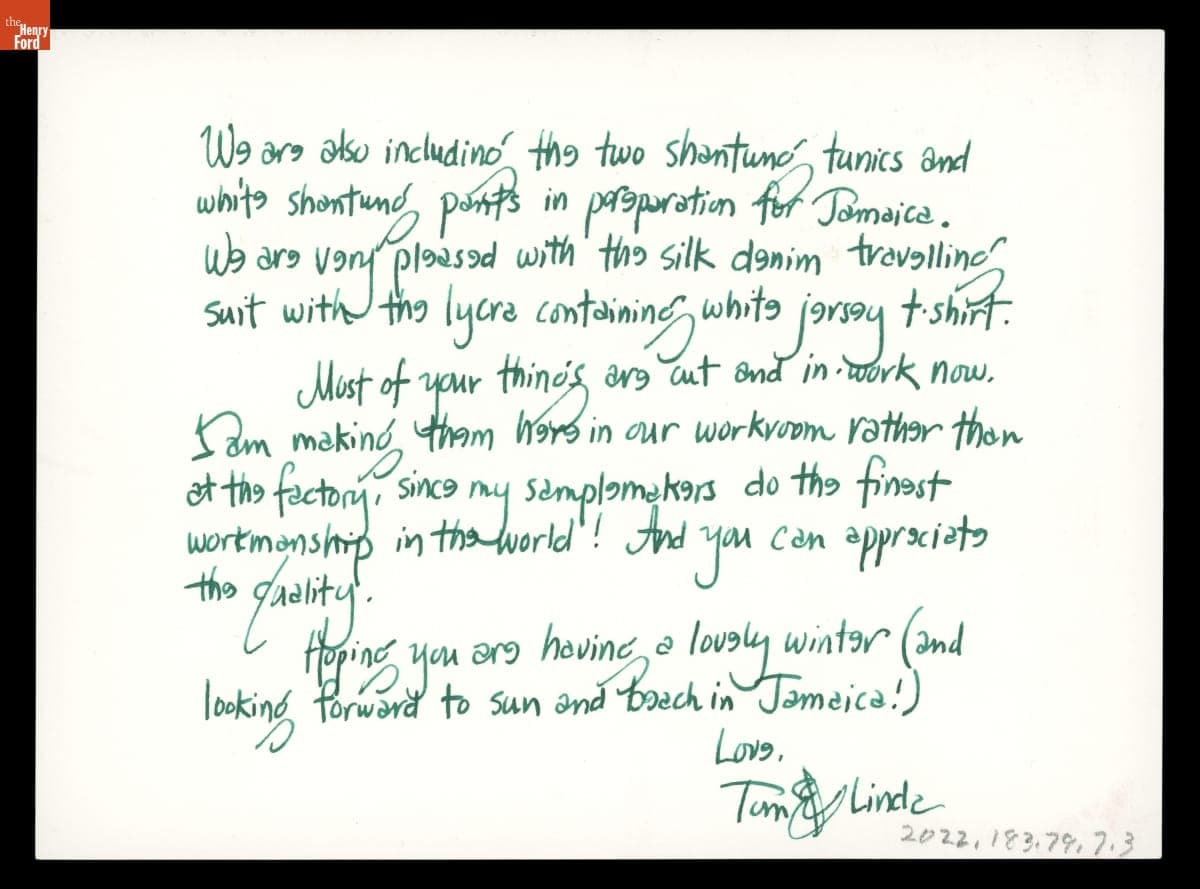 the
Henry
Ford
We are also including the two shantung tunics and
white shantung pants in preparation for Jamaica.
We are very pleased with the silk denim travelling
suit with the lycra containing white jersey t-shirt.
Most of your things are cut and in-work now.
I am making them here in our workroom rather than
at the factory, since my samplemakers do the finest
workmanship in the world! And you can appreciate
the quality.
Hoping you are having a lovely winter (and
looking forward to sun and beach in Jamaica!)
Love,
Tom & Linda
2022.183.79.7.3